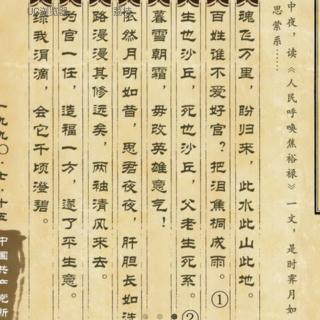 中夜，读《人民呼唤焦裕禄》一文，是时霁月如
思萦系……
魂飞万里，盼归来，此水此山此地。
百姓谁不爱好官？把泪焦桐成雨。①
生也沙丘，死也沙丘，父老生死系。②
暮雪朝霜，毋改英雄意气！
依然月明如昔，思君夜夜，肝胆长如洗
路漫漫其修远矣，两袖清风来去。
为官一任，造福一方，遂了平生意。
绿我涓滴，会它千顷澄碧。
一九九〇·七·十五
中国共产党新
UC浏览器